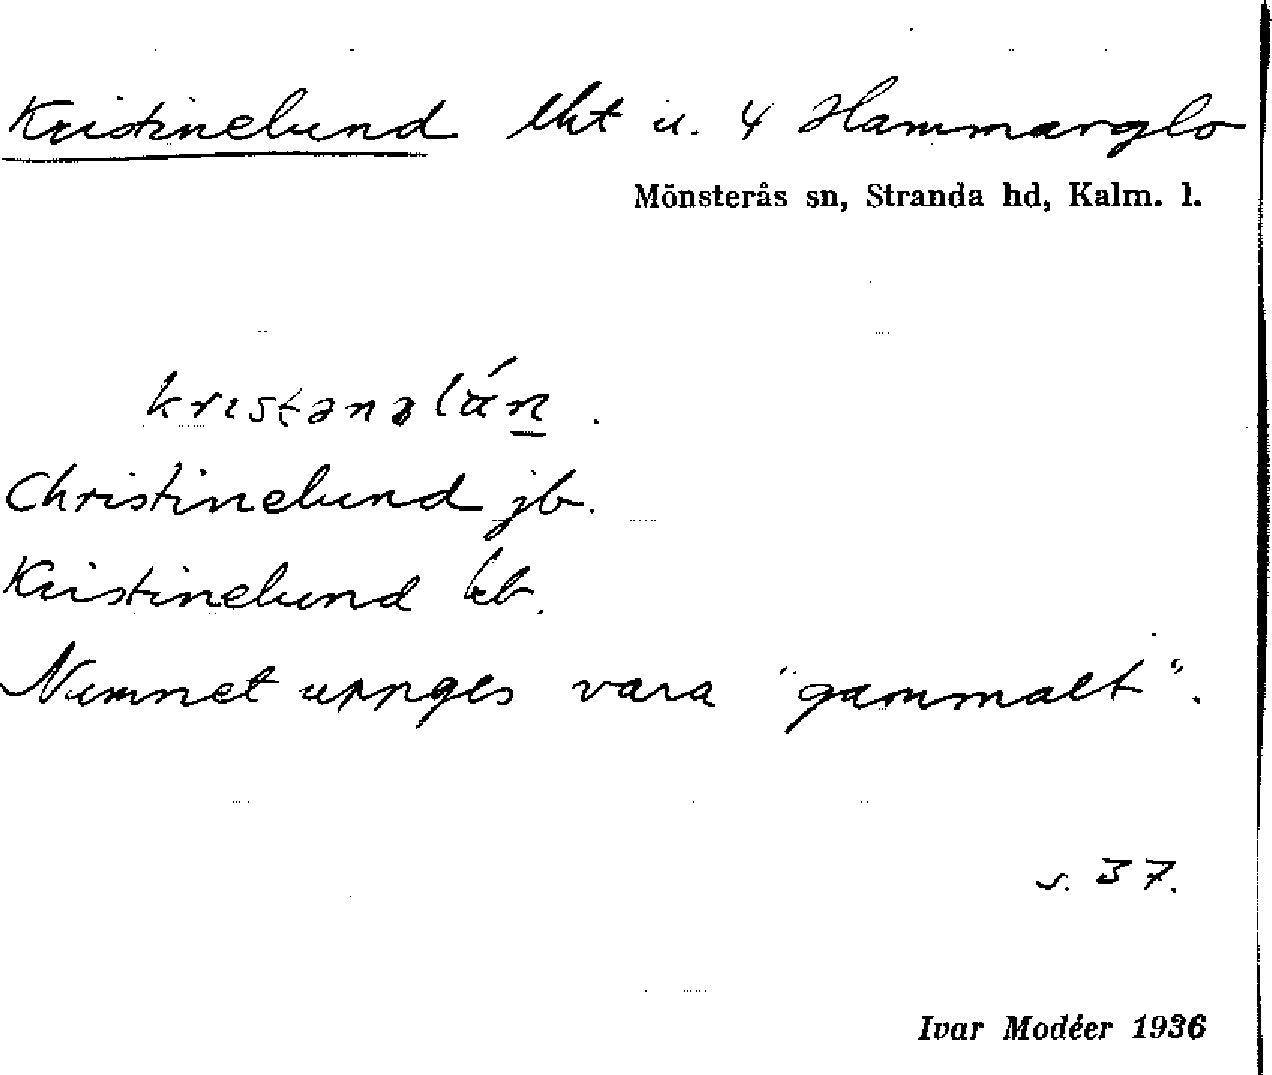 Kristinelund lht u. 4 Hammarglo
Mönsterås sn, Stranda hd, Kalm. l.
Christinelund jb.
Kristinelund kb.
Namnet uppges vara "gammalt".
s. 37.
Ivar Modéer 1936